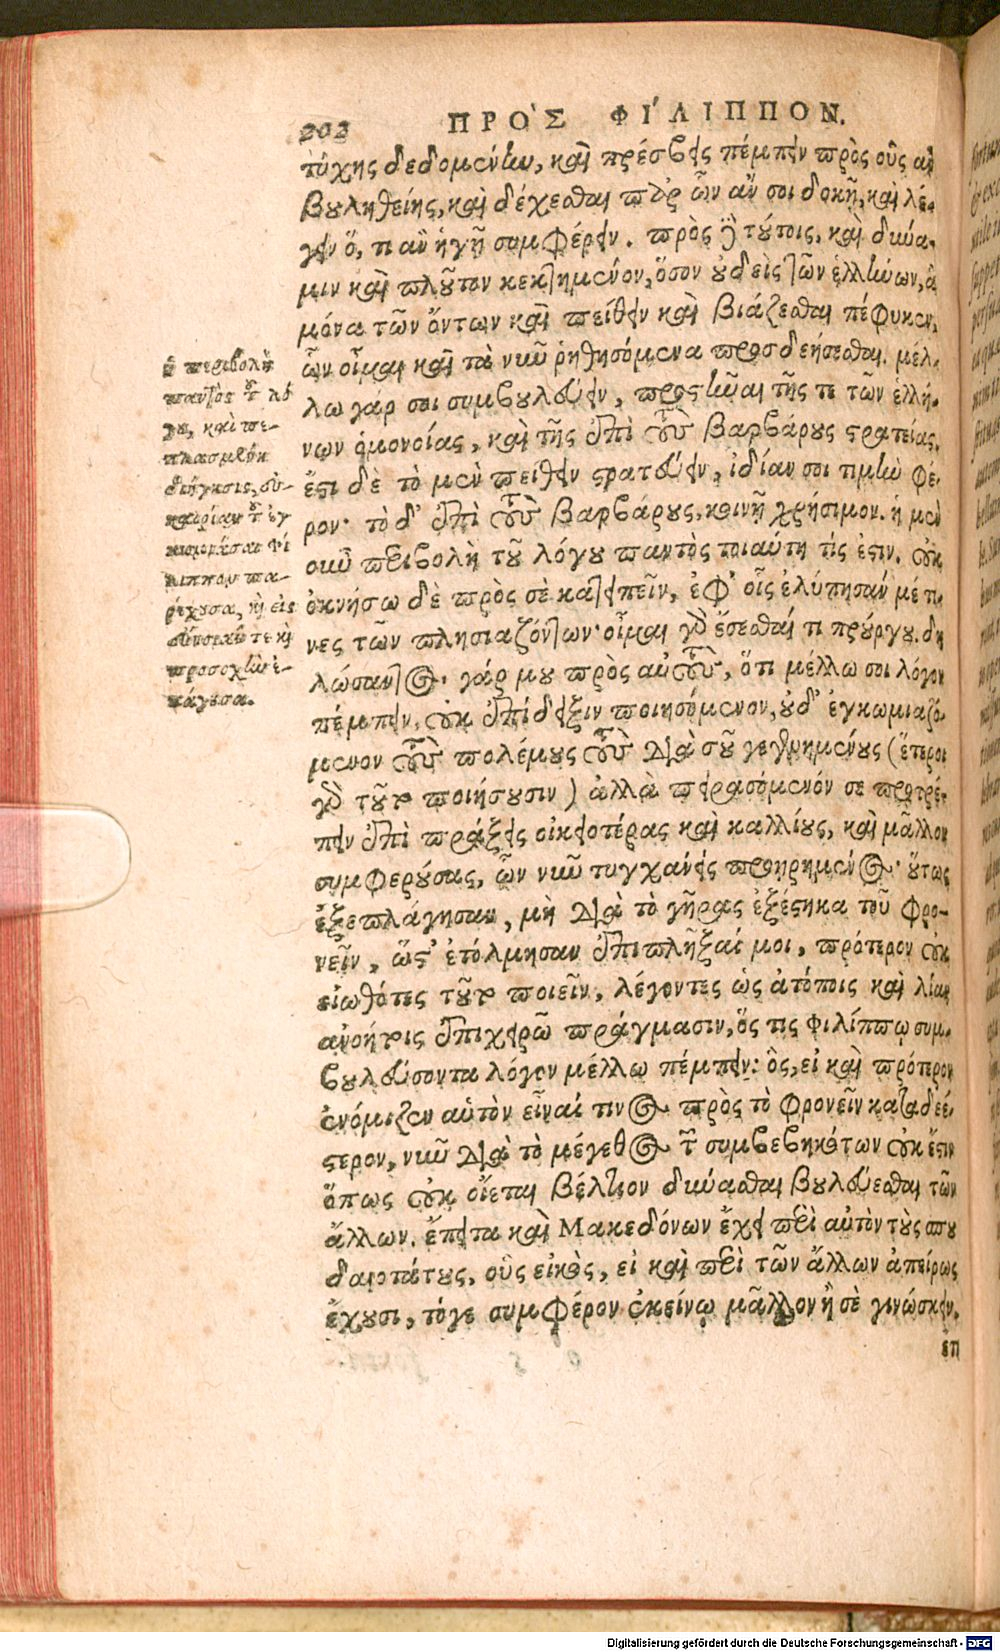 202 ΠΡΟ᾽Σ ΦΙ´ΛΙΠΠΟΝ.
τύχης δεδομένην, καὶ πρέσβεις πέμπειν πρὸς οὓς ἂν
βουληθείης, καὶ δέχεσθαι παρ᾽ ὧν ἄν σοι δοκῇ, καὶ λέ-
γειν ὅ, τι ἂν ἡγῇ συμφέρειν. πρὸς δὲ τούτοις, καὶ δύνα-
μιν καὶ πλοῦτον κεκτημένον, ὅσον οὐδεὶς τῶν ἑλλήνων, ἃ
μόνα τῶν ὄντων καὶ πείθειν καὶ βιάζεσθαι πέφυκεν,
ὧν οἶμαι καὶ τὰ νῦν ῥηθησόμενα προσδεήσεσθαι. μέλ-
λω γάρ σοι συμβουλεύειν, προςῆναι τῆς τε τῶν ἑλλή-
νων ὁμονοίας, καὶ τῆς ἐπὶ τοὺς βαρβάρους στρατείας,
ἔστι δὲ τὸ μὲν πείθειν στρατεύειν, ἰδίαν σοι τιμὴν φέ-
ρον· τὸ δ᾽ ἐπὶ τοὺς βαρβάρους, κοινῇ χρήσιμον. ἡ μὲν
οὖν περιβολὴ τοῦ λόγου παντὸς τοιαύτη τίς ἐστιν. οὐκ
ὀκνήσω δὲ πρὸς σὲ κατειπεῖν, ἐφ᾽ οἷς ἐλύπησάν μέ τι-
νες τῶν πλησιαζόντων· οἶμαι γὰρ ἔσεσθαί τι προύργου. δη
λώσαντος γάρ μου πρὸς αὐτοὺς, ὅτι μέλλω σοι λόγον
πέμπειν, οὐκ ἐπίδειξιν ποιησόμενον, οὐδ᾽ ἐγκωμιαζό-
μενον τοὺς πολέμους τοὺς διὰ σοῦ γεγενημένους (ἕτεροι
γὰρ τοῦτο ποιήσουσιν) ἀλλὰ πειρασόμενόν σε προτρέ-
πειν ἐπὶ πράξεις οἰκειοτέρας καὶ καλλίους, καὶ μᾶλλον
συμφερούσας, ὧν νῦν τυγχάνεις προῃρημένος· οὕτως
ἐξεπλάγησαν, μὴ διὰ τὸ γῆρας ἐξέστηκα τοῦ φρο-
νεῖν, ὥστ᾽ ἐτόλμησαν ἐπιπλῆξαί μοι, πρότερον οὐκ
εἰωθότες τοῦτο ποιεῖν, λέγοντες ὡς ἀτόποις καὶ λίαν
ἀνοήτοις ἐπιχειρῶ πράγμασιν, ὅς τις Φιλίππῳ συμ-
βουλεύσοντα λόγον μέλλω πέμπειν: ὃς, εἰ καὶ πρότερον
ἐνόμιζεν αὑτὸν εἶναί τινος πρὸς τὸ φρονεῖν καταδεέ-
στερον, νῦν διὰ τὸ μέγεθος τῶν συμβεβηκότων οὐκ ἔστιν
ὅπως οὐκ οἴεται βέλτιον δύνασθαι βουλεύεσθαι τῶν
ἄλλων. ἔπειτα καὶ Μακεδόνων ἔχει περὶ αὐτὸν τοὺς σπου
δαιοτάτους, οὓς εἰκὸς, εἰ καὶ περὶ τῶν ἄλλων ἀπείρως
ἔχουσι, τόγε συμφέρον ἐκείνῳ μᾶλλον ἢ σὲ γινώσκειν.
ἔπ
ἡ περιβολὴ
παντὸς τοῦ λό
γου, καὶ πε-
πλασμένη
διήγησις,
Λιππον πα-
ρέχουσα, καὶ εἰς
εὔνοιαν τε καὶ
προσοχὴν ἐ-
πάγουσα.
Digitalisierung gefördert durch die Deutsche Forschungsgemeinschaft - DFG